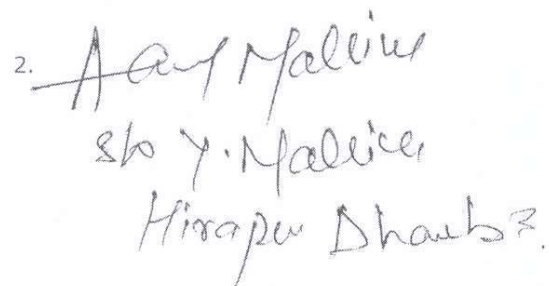 2. A Mallick
S/o Y. Mallick
Hirapur Dhanbad.